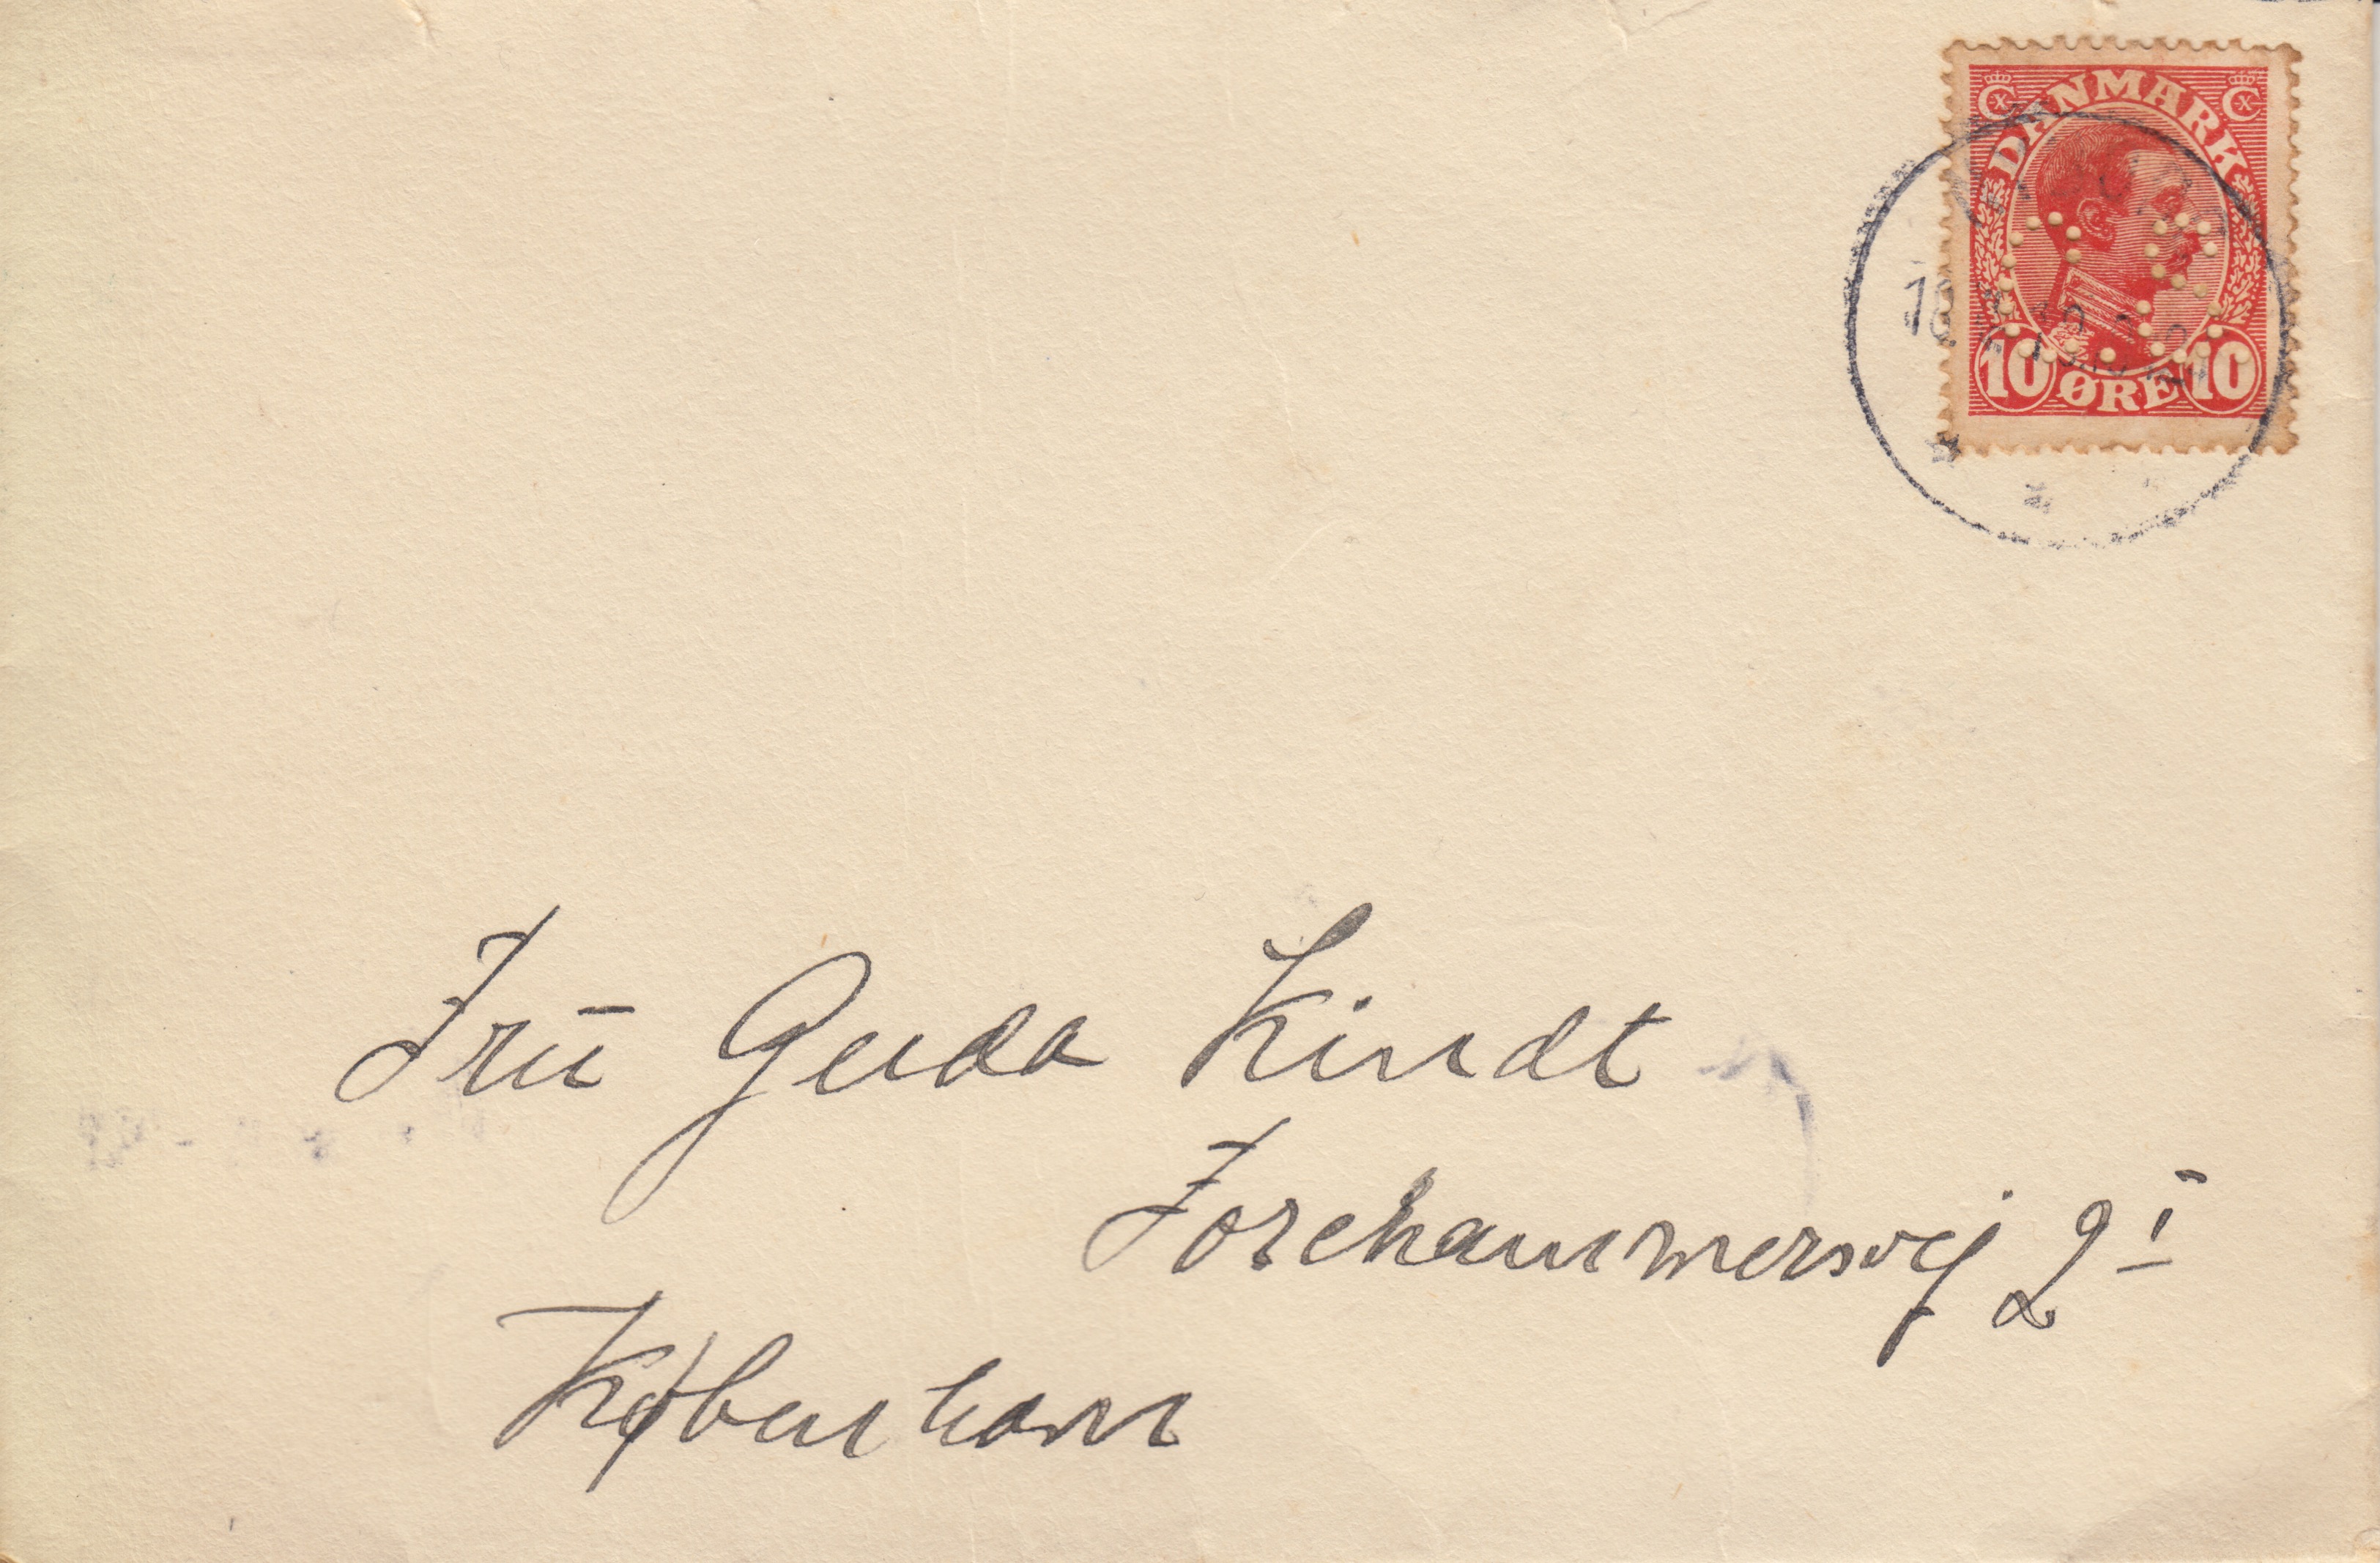 DANMARK
10 ØRE 10
Frū Guda Kindt
Forchammersvej 2 I
København